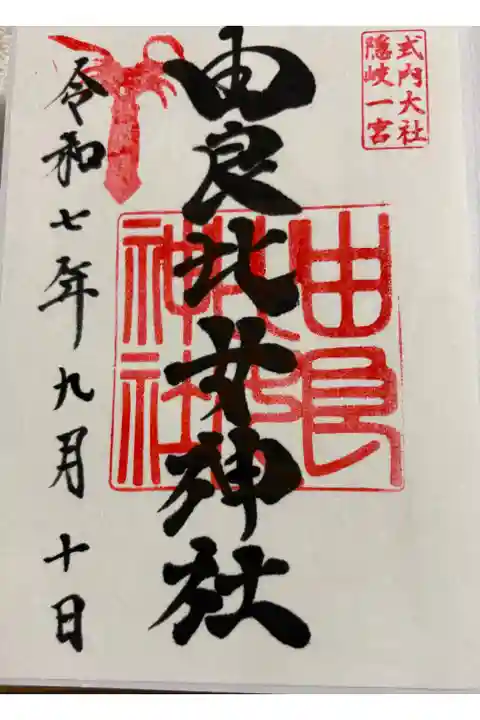 式内大社
隠岐一宮
由良比女神社
由良
比女
神社
令和七年九月十日